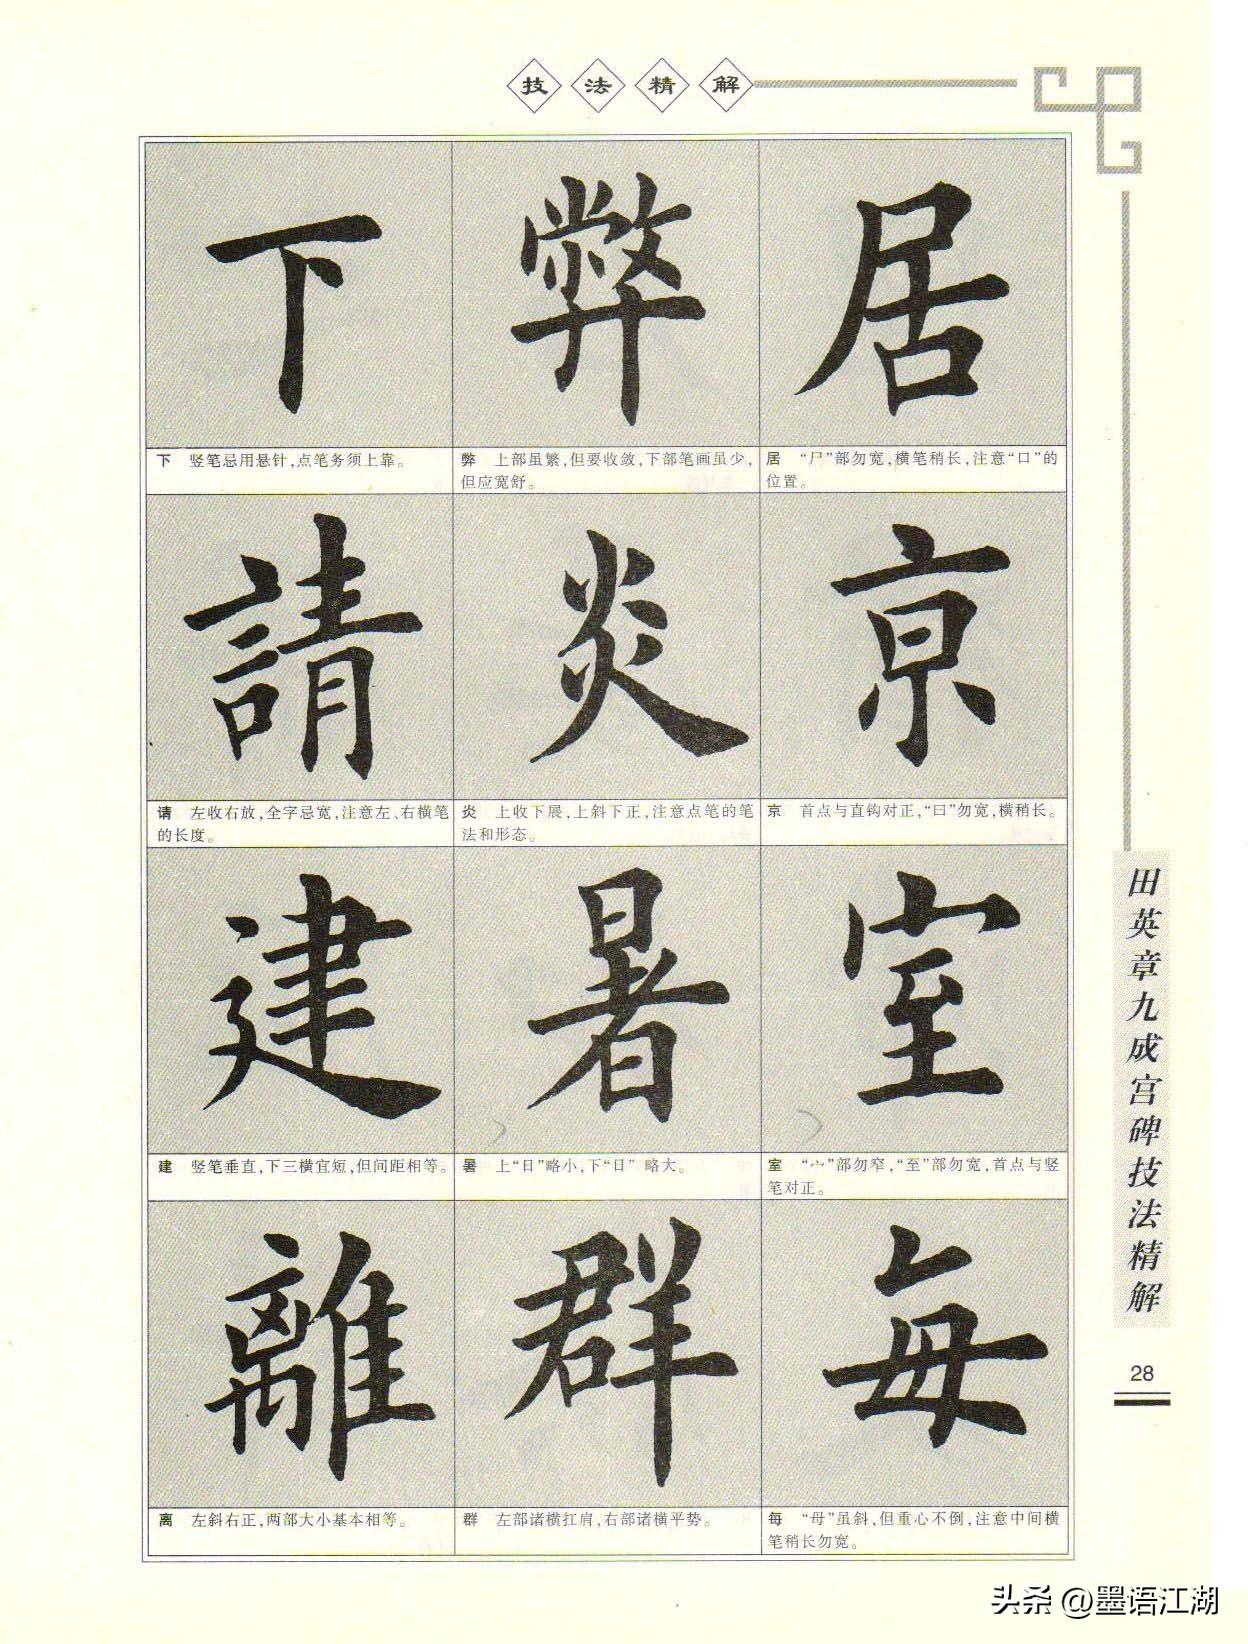 技法精解
下 弊 居
下 竖笔忌用悬针,点笔务须上靠。
弊 上部虽繁,但要收敛,下部笔画虽少,
但应宽舒。
居 “尸”部勿宽,横笔稍长,注意“口”的
位置。
請 炎 京
请 左收右放,全字忌宽,注意左、右横笔
的长度。
炎 上收下展,上斜下正,注意点笔的笔
法和形态。
京 首点与直钩对正,“曰”勿宽,横稍长。
建 暑 室
建 竖笔垂直,下三横宜短,但间距相等。
暑 上“日”略小,下“日”略大。
室 “宀”部勿窄,“至”部勿宽,首点与竖
笔对正。
離 群 每
离 左斜右正,两部大小基本相等。
群 左部诸横扛肩,右部诸横平势。
每 “母”虽斜,但重心不倒,注意中间横
笔稍长勿宽。
田英章九成宫碑技法精解
28
头条 @墨语江湖